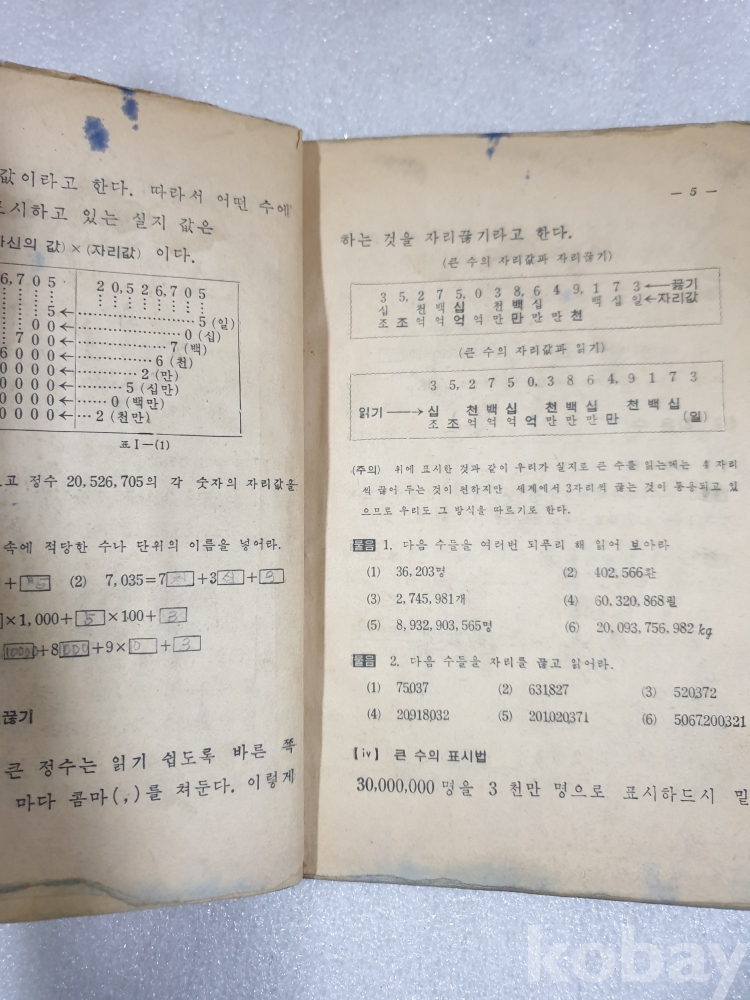 값이라고 한다. 따라서 어떤 수에
표시하고 있는 실지 값은
자신의 값) × (자리값) 이다.
6,705 20,526,705
5← 5 (일)
00← 0 (십)
700← 7 (백)
6000← 6 (천)
0000← 2 (만)
0000← 5 (십만)
0000← 0 (백만)
0000← 2 (천만)
표 I—(1)
고 정수 20,526,705의 각 숫자의 자리값을
속에 적당한 수나 단위의 이름을 넣어라.
+ 5 (2) 7,035=7 +3 + 3
×1,000+ 5 ×100+ 3
+8 000 +9× 0 + 3
끊기
큰 정수는 읽기 쉽도록 바른 쪽
마다 콤마(,)를 쳐둔다. 이렇게
— 5 —
하는 것을 자리끊기라고 한다.
(큰 수의 자리값과 자리끊기)
3 5, 2 7 5, 0 3 8, 6 4 9, 1 7 3 ←끊기
십 천 백 십 천 백 십 백 십 일←자리값
조 조 억 억 억 억 만 만 만 만 천
(큰 수의 자리값과 읽기)
3 5, 2 7 5 0, 3 8 6 4, 9 1 7 3
읽기 → 십 천 백 십 천 백 십 천 백 십
조 조 억 억 억 억 만 만 만 만 (일)
(주의) 위에 표시한 것과 같이 우리가 실지로 큰 수를 읽는데는 4 자리
씩 끊어 두는 것이 편하지만 세계에서 3자리씩 끊는 것이 통용되고 있
으므로 우리도 그 방식을 따르기로 한다.
물음 1. 다음 수들을 여러번 되푸리 해 읽어 보아라
(1) 36,203명 (2) 402,566환
(3) 2,745,981개 (4) 60,320,868필
(5) 8,932,903,565명 (6) 20,093,756,982 kg
물음 2. 다음 수들을 자리를 끊고 읽어라.
(1) 75037 (2) 631827 (3) 520372
(4) 20918032 (5) 201020371 (6) 5067200321
【iv】 큰 수의 표시법
30,000,000 명을 3 천만 명으로 표시하드시 밑
kobay